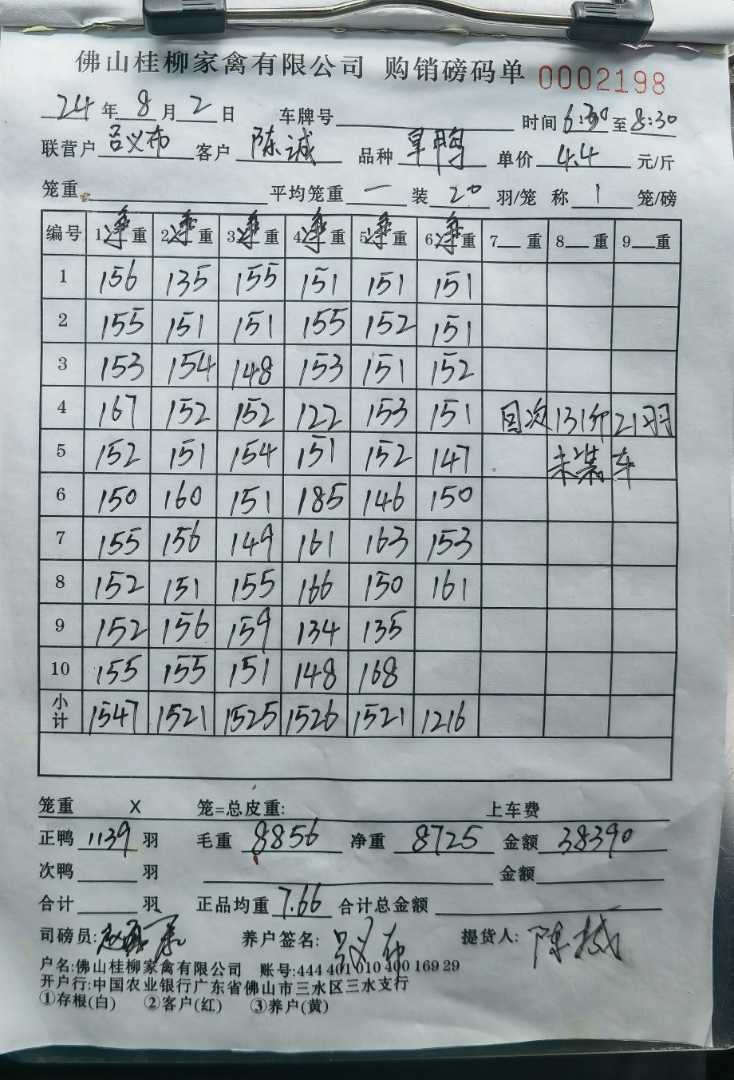 佛山桂柳家禽有限公司 购销磅码单 0002198
24 年 8 月 2 日 车牌号 时间 6:30 至 8:30
联营户 吕义布 客户 陈诚 品种 旱鸭 单价 4.4 元/斤
笼重 平均笼重 一 装 20 羽/笼 称 1 笼/磅
编号 1净重 2净重 3净重 4净重 5净重 6净重 7 重 8 重 9 重
1 156 135 155 151 151 151
2 155 151 151 155 152 151
3 153 154 148 153 151 152
4 167 152 152 122 153 151 回次 131斤 21羽
5 152 151 154 151 152 147 未装车
6 150 160 151 185 146 150
7 155 156 149 161 163 153
8 152 151 155 166 150 161
9 152 156 159 134 135
10 155 155 151 148 168
小计 1547 1521 1525 1526 1521 1216
笼重 X 笼=总皮重: 上车费
正鸭 1139 羽 毛重 8856 净重 8725 金额 38390
次鸭 羽 金额
合计 羽 正品均重 7.66 合计总金额
司磅员: 养户签名: 吕义布 提货人: 陈诚
户名:佛山桂柳家禽有限公司 账号:444 401 010 400 169 29
开户行:中国农业银行广东省佛山市三水区三水支行
①存根(白) ②客户(红) ③养户(黄)